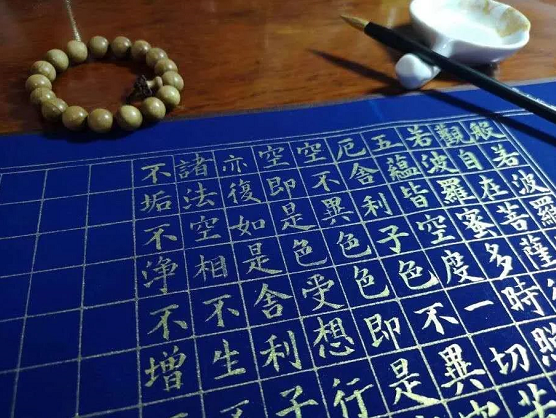 般若波羅
觀自在菩薩
若波羅蜜多時照
五蘊皆空度一切苦
厄舍利子色不異
空不異色色即是
空即是色受想行
亦復如是舍利子
諸法空相不生不
不垢不淨不增